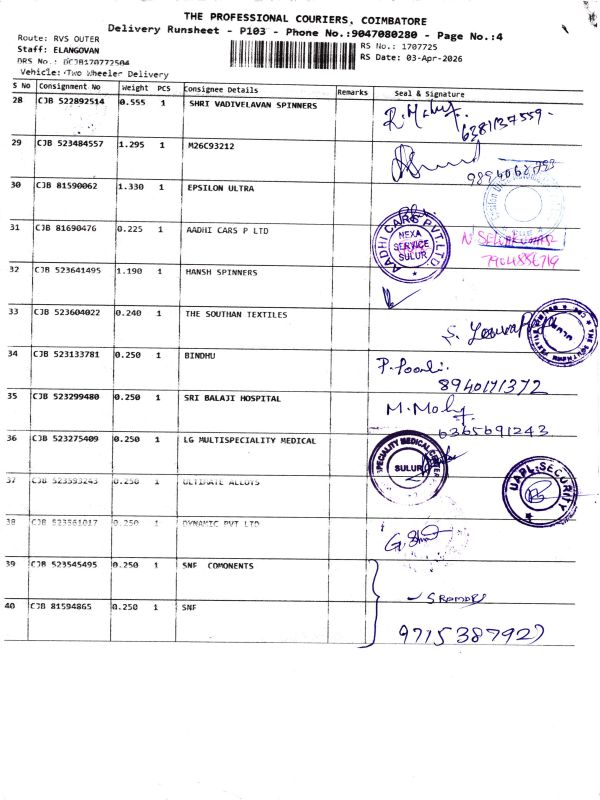 THE PROFESSIONAL COURIERS, COIMBATORE
Delivery Runsheet - P103 - Phone No.:9047080280 - Page No.:4
Route: RVS OUTER
RS No.: 1707725
Staff: ELANGOVAN
RS Date: 03-Apr-2026
DRS No.: DCJB170772504
Vehicle: Two Wheeler Delivery
S No Consignment No Weight PCS Consignee Details Remarks Seal & Signature
28 CJB 522892514 0.555 1 SHRI VADIVELAVAN SPINNERS
6381137559
29 CJB 523484557 1.295 1 M26C93212
30 CJB 81590062 1.330 1 EPSILON ULTRA
31 CJB 81690476 0.225 1 AADHI CARS P LTD
AADHI CARS PVT.LTD.
NEXA
SERVICE
SULUR
7904886719
32 CJB 523641495 1.190 1 HANSH SPINNERS
33 CJB 523604022 0.240 1 THE SOUTHAN TEXTILES
34 CJB 523133781 0.250 1 BINDHU
8940171372
35 CJB 523299480 0.250 1 SRI BALAJI HOSPITAL
36 CJB 523275409 0.250 1 LG MULTISPECIALITY MEDICAL
SULUR
UAPL-SECURITY
37 CJB 523593243 0.250 1 ULTIMATE ALLOYS
38 CJB 523561017 0.250 1 DYNAMIC PVT LTD
39 CJB 523545495 0.250 1 SNF COMONENTS
40 CJB 81594865 0.250 1 SNF
9715387927